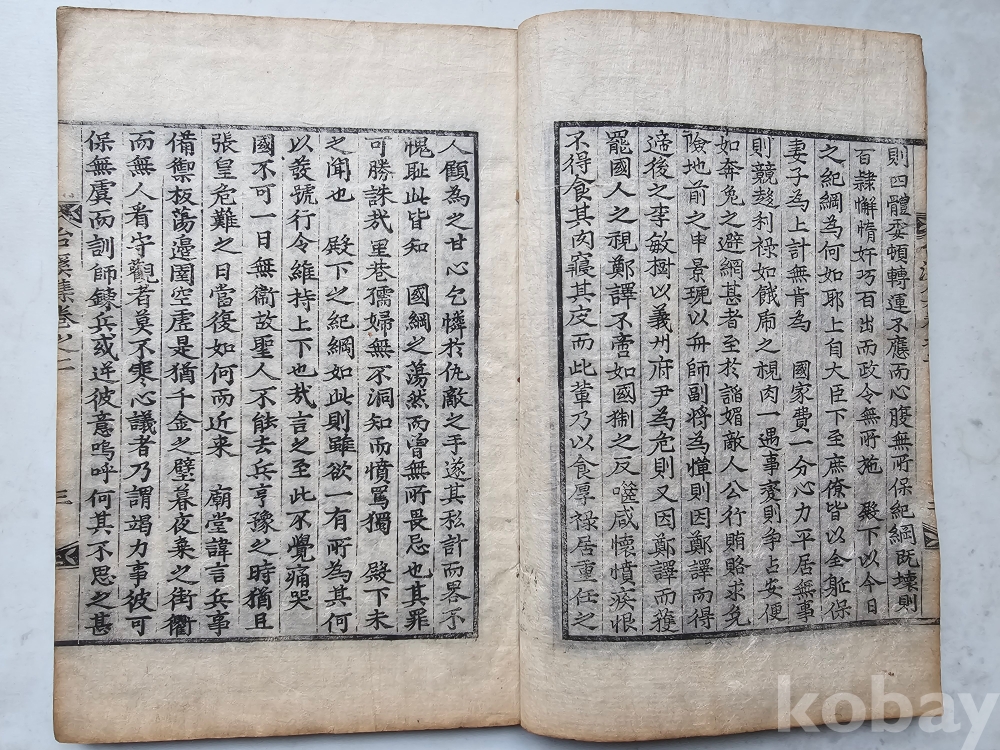 則四體委頓轉運不應而心腹無所保紀綱旣壞則
百隷懈惰奸巧百出而政令無所施 殿下以今日
之紀綱為何如耶上自大臣下至庶僚皆以全軀保
妻子為上計無肯為 國家費一分心力平居無事
則競趍利祿如餓虎之梘肉一遇事變則争占安便
如奔兔之避網甚者至於謟媚敵人公行賄賂求免
險地前之申景琥以舟師副將為憚則因鄭譯而得
遞後之李敏樹以義州府尹為危則又因鄭譯而獲
罷國人之視鄭譯不啻如國猘之反噬咸懷憤疾恨
不得食其肉寢其皮而此輩乃以食厚祿居重任之
人顧為之甘心乞憐於仇敵之手遂其私計而畧不
愧耻此皆知 國綱之蕩然而曾無所畏忌也其罪
可勝誅㢤里巷孺婦無不洞知而憤罵獨 殿下未
之聞也 殿下之紀綱如此則雖欲一有所為其何
以發號行令維持上下也㢤言之至此不覺痛哭
國不可一日無衞故聖人不能去兵亨豫之時猶且
張皇危難之日當復如何而近来 廟堂諱言兵事
備禦板蕩邊圉空虛是猶千金之璧暮夜棄之街衢
而無人看守觀者莫不寒心議者乃謂竭力事彼可
保無虞而訓師鍊兵或逆彼意嗚呼何其不思之甚
台溪集卷之二
三
kobay